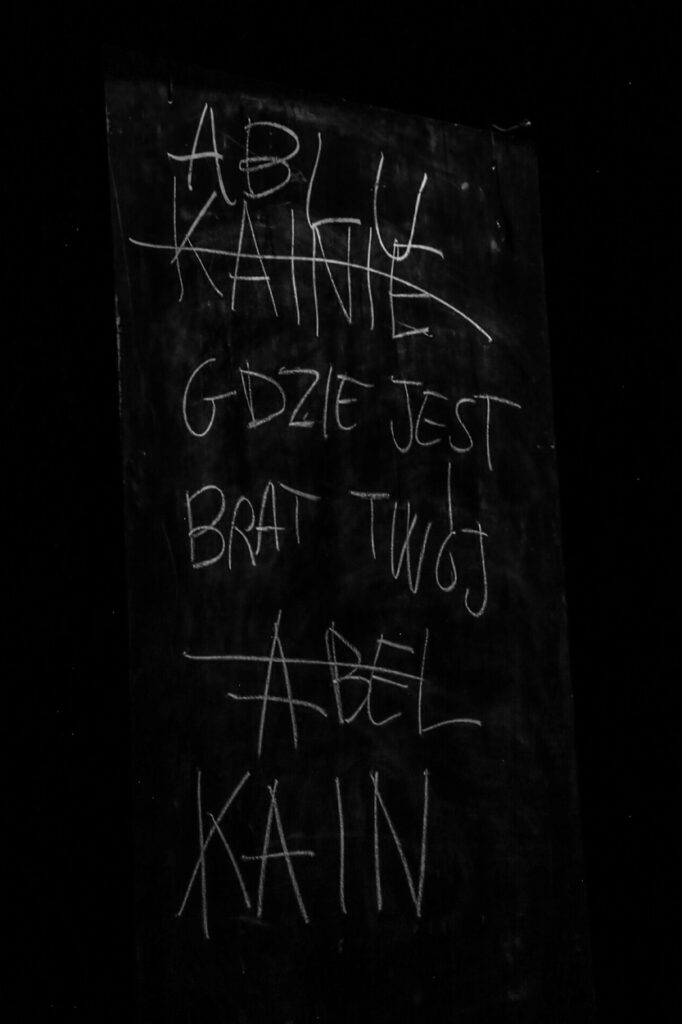 ABLU
KAINIE
GDZIE JEST
BRAT TWÓJ
ABEL
KAIN